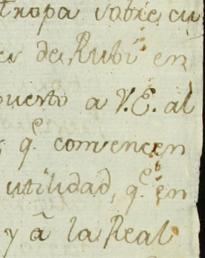 tropa sobre cu
de Rubí en
puesto a V.E. al
q.e convencen
utilidad, q.e en
y â la Real